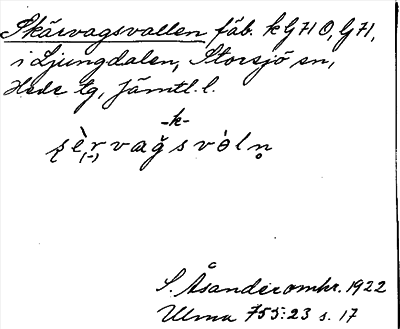 Skärvagsvallen fäb. k G H O, G H,
i Ljungdalen, Storsjö sn,
Hede tg, Jämtl. l.
-k-
ʂè̩r̩vaǧsvòln̥
(-)
S. Åsander omkr. 1922
Ulma 755:23 s. 17